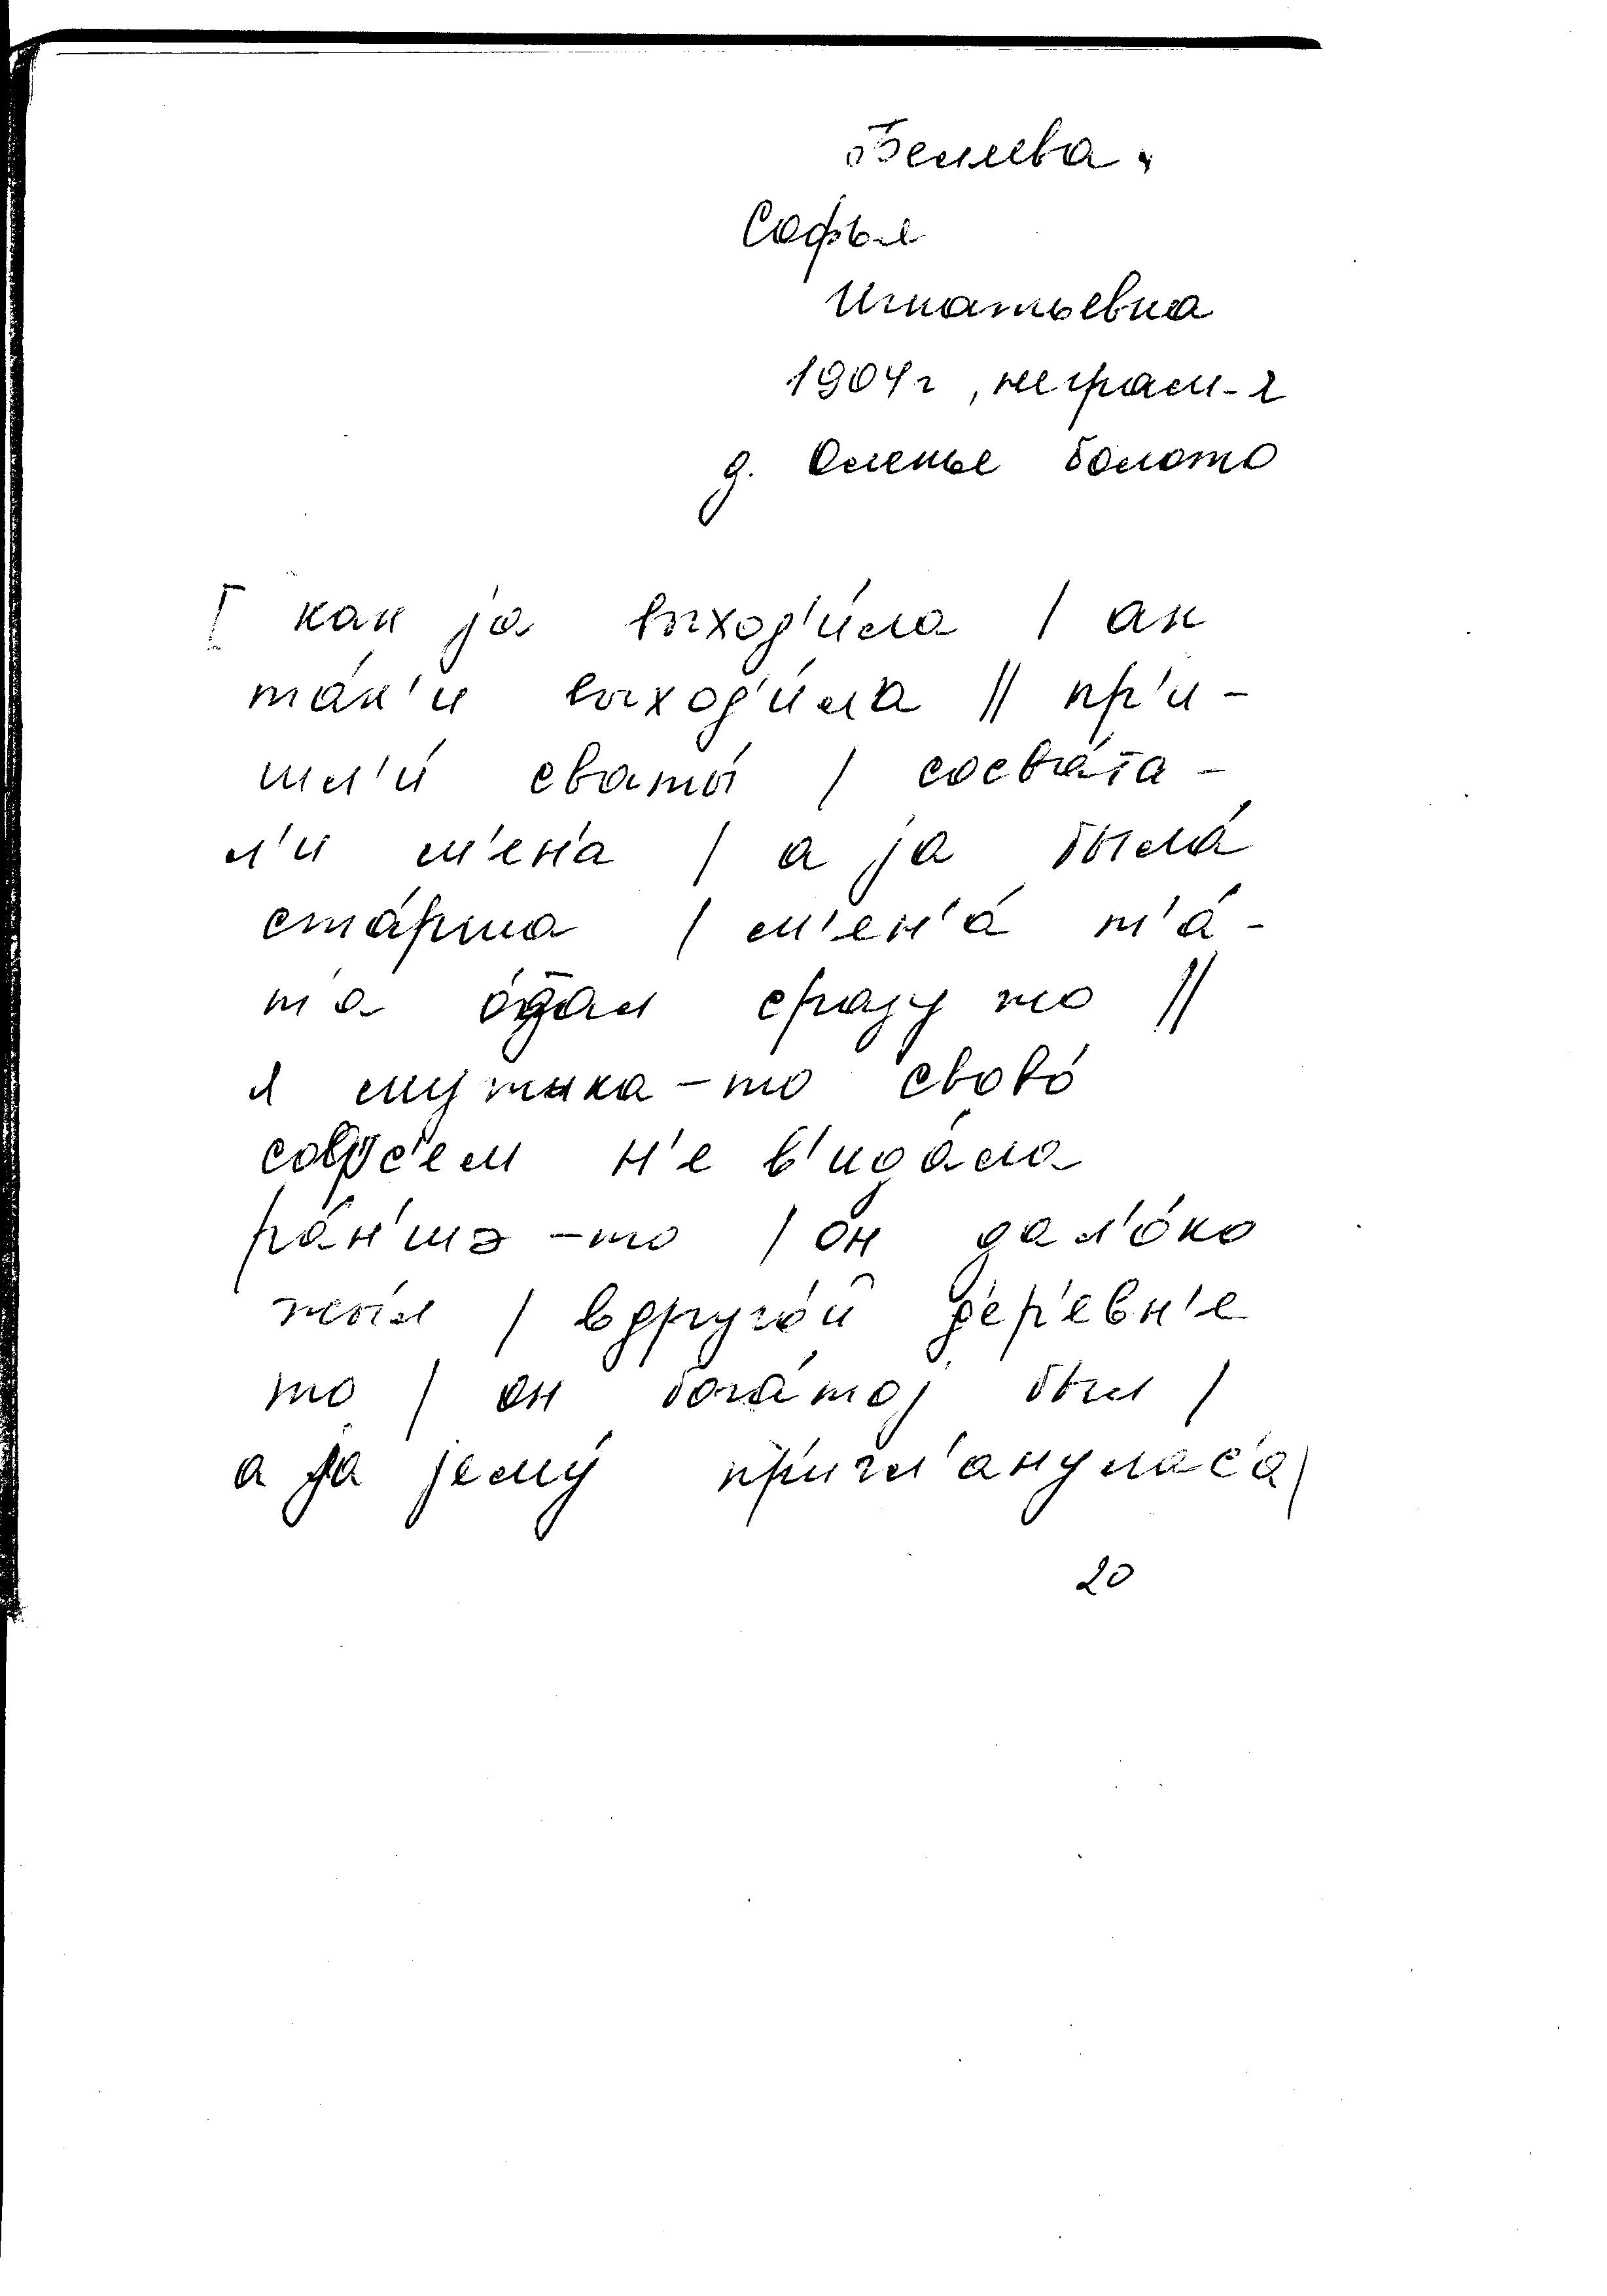 Беляева
Софья
Игнатьевна
1904г, неграм-я
д. Оленье болото
[ как jа выход'и́ла / ак
та́к'и выход'и́ла // пр'и-
шл'и́ сваты́ / сосва́та-
л'и м'ен'а / а jа была́
ста́рша / м'ен'а́ т'а́-
т'а о́тдал сразу то //
я мужыка-то свово́
совс'ем н'е в'ида́ла
ра́н'шэ-то / он дал'о́ко
жы́л / вдруго́й д'ер'евн'е
то / он бога́тоj был /
а jа jему́ пр'игл'анулас'а /
20